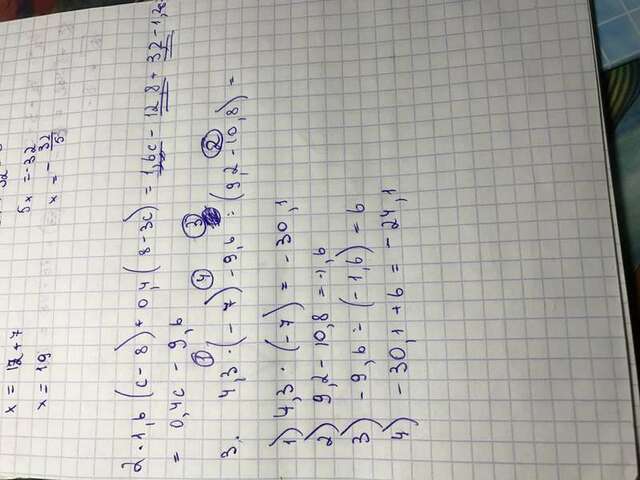 x = 12 + 7
x = 19
5x = -32
x = - 32/5
2. 1,6 (c - 8) + 0,4 (8 - 3c) = 1,6c - 12,8 + 3,2 - 1,2c
= 0,4c - 9,6
① ④ ③ ②
3. 4,3 · (-7) - 9,6 : (9,2 - 10,8) =
1) 4,3 · (-7) = -30,1
2) 9,2 - 10,8 = -1,6
3) -9,6 : (-1,6) = 6
4) -30,1 + 6 = -24,1